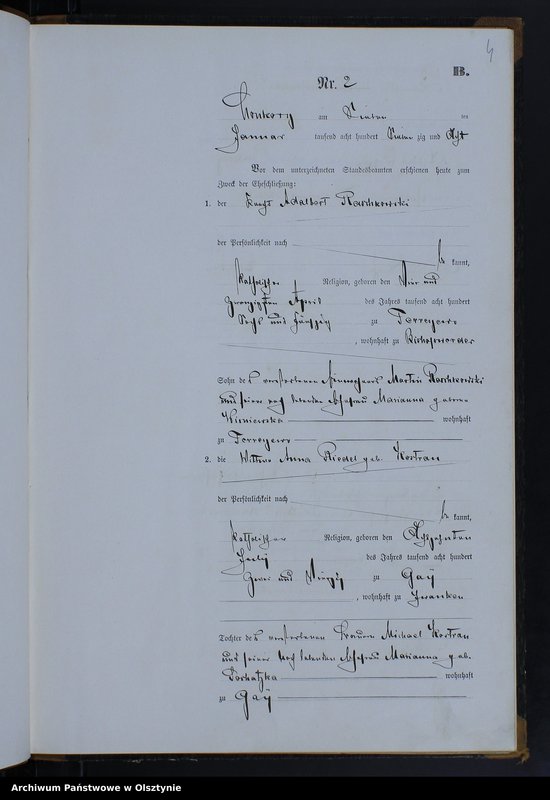 4
B.
Nr. 2
am Sieben ten
Januar tausend acht hundert Sieben zig und Acht
Vor dem unterzeichneten Standesbeamten erschienen heute zum
Zweck der Eheschließung:
1. der Knecht Adalbert Raschkowski
der Persönlichkeit nach
be kannt,
katholischer Religion, geboren den Vier und
zwanzigsten April des Jahres tausend acht hundert
Sechs und fünfzig zu
, wohnhaft zu Bischofswerder
Sohn des verstorbenen Einwohners Martin Raschkowski
und seiner noch lebenden Ehefrau Marianna geborene
Wisniewska wohnhaft
zu
2. die Wittwe Anna Riedel geb. Kostran
der Persönlichkeit nach
be kannt,
katholischer Religion, geboren den Achtzehnten
July des Jahres tausend acht hundert
Zwei und Vierzig zu Gay
, wohnhaft zu
Tochter des verstorbenen Michael Kostran
und seiner noch lebenden Ehefrau Marianna geb.
wohnhaft
zu Gay
Archiwum Państwowe w Olsztynie